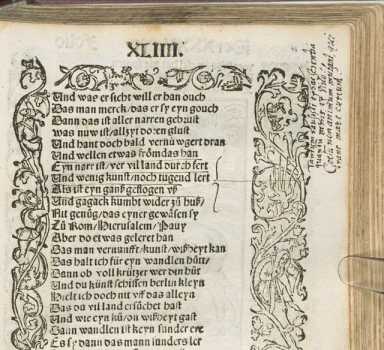 XLIIII.
Und was er sicht will er han ouch
Das man merck/das er sy eyn gouch
Dann das ist aller narren gebrust
was nuw ist/allzyt do zen glust
Und hant doch bald vernůwgert dran
Und wellen etwas frömds han
Eyn narr ist/ver vil land durch fert
Und wenig kunst/noch tugend lert
Als ist eyn ganß geflogen uß
Und gagack kumbt wider zů huß
Nit genůg/das eyner gewäsen sy
Zů Rom/Hierusalem/Pauy
Aber do etwas geleret han
Das man vernunfft/kunst/wißheyt kan
Das halt ich für eyn wandlen hütt/
Dann ob voll krützer wer din hüt
Und du künst schissen berlin kleyn
Hielt ich doch nit uff das alleyn
Das du vil land ersůchet hast
Und wie eyn ků/on wißheyt gast
Dann wandlen ist keyn sunder ere
Es sy dann das man sunders ler